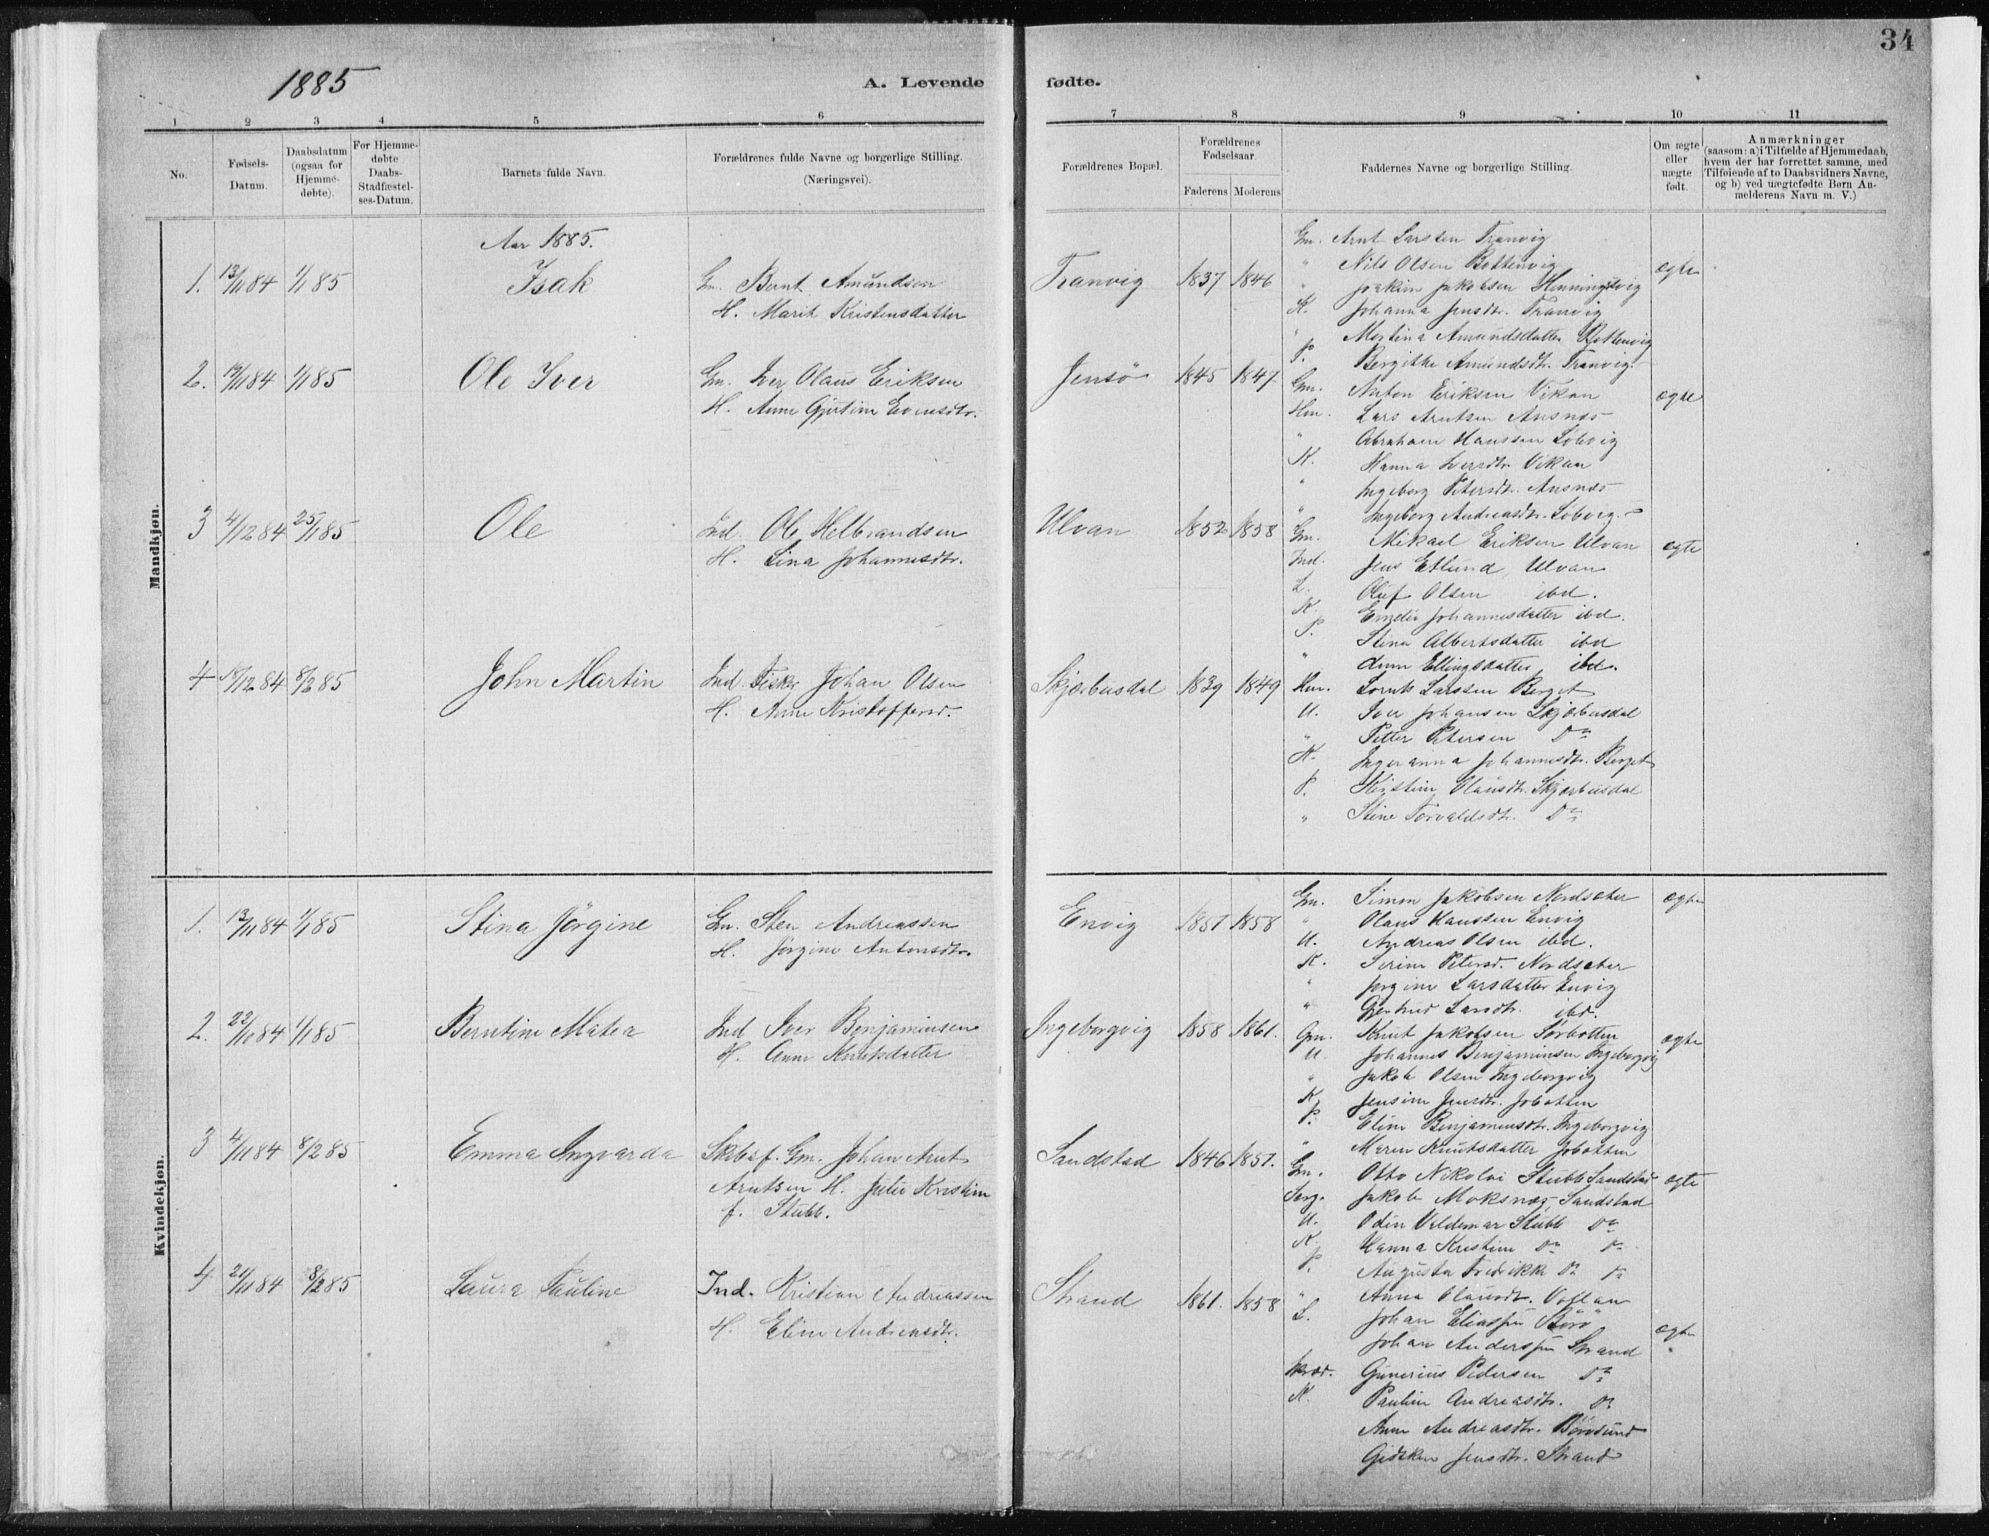 34
1885
A. Levende fødte.
1 2 3 4 5 6 7 8 9 10 11
No.
Fødsels-Datum.
Daabsdatum (ogsaa for Hjemme-døbte).
For Hjemme-døbte Daabs-Stadfæstel-ses-Datum.
Barnets fulde Navn.
Forældrenes fulde Navne og borgerlige Stilling. (Næringsvei).
Forældrenes Bopæl.
Forældrenes Fødselsaar.
Faderens Moderens
Faddernes Navne og borgerlige Stilling.
Om ægte eller uægte født.
Anmærkninger
(saasom: a) i Tilfælde af Hjemmedaab, hvem der har forrettet samme, med Tilføiende af to Daabsvidners Navne, og b) ved uægtefødte Børn Anmelderens Navn m. V.)
Mandkjøn.
Aar 1885.
1. 13/11 84 1/1 85 Isak
Gm. Bernt Amundsen
H. Marit Kristensdatter
Tranvig 1837 1846
Gm. Arnt Larsen Tranvig
" Nils Olsen Bottenvig
" Joakim Jakobsen Henningsvig
K. Johanna Jensdtr. Tranvig
" Martina Amundsdatter Bottenvig
P. Bergithe Amundsdtr. Tranvig.
ægte
2. 19/11 84 1/1 85 Ole Iver
Gm. Iver Olaus Eriksen
H. Anne Gjertine Evensdtr.
Jensö 1845 1847.
Gm. Anton Eriksen Vikan
Hm. Lars Arntsen Ansnæs
" Abraham Hanssen Lobvig
K. Hanna Iversdtr. Vikan
" Ingeborg Petersdtr. Ansnæs
" Ingeborg Andreasdtr. Lobvig.
ægte
3 4/12 84 25/1 85 Ole
Ind. Ole Helbrandsen
H. Lina Johannesdtr.
Ulvan 1852 1858
Gm. Mikael Eriksen Ulvan
Ind. Jens Etlund, Ulvan
L. Oluf Olsen ibd.
K. Johannesdatter ibd.
P. Stina Albertsdatter ibd
" Anne Ellingsdatter ibd.
ægte
4 /12 84 8/2 85 John Martin
Ind. Fisker Johan Olsen
H. Anne Kristoffersd.
Skjærbusdal 1839 1849
Hm. Lornts Larssen Berget
U. Iver Johansen Skjærbusdal
" Petter Petersen Do
K. Ingeranna Johannesdtr. Berget
P. Kirstine Olausdtr. Skjærbusdal
" Stine Torvaldsdtr. Do
Kvindekjøn.
1. 13/11 84 1/1 85 Stina Jörgine
Gm. Sten Andreassen
H. Jörgine Antonsdtr.
Envig 1851 1858
Gm. Simon Jakobsen Nordseter
" Olaus Hanssen Envig
U. Andreas Olsen ibd.
K. Sirine Petersd. Nordseter
" Jörgine Larsdatter Envig
" Gjertrud Larsdtr. ibd.
ægte
2. 22/10 84 1/1 85 Berntine Matea
Ind Iver Benjaminsen
H. Anne Knutsdatter
Ingeborgvig 1858 1861.
Gm. Knut Jakobsen Sørbotten
U. Johannes Benjaminsen Ingeborgvig
" Jakob Olsen Ingeborgvig
K. Jensine Jensdtr. Jobotten
P. Eline Benjaminsdtr. Ingeborgvig
" Maren Knutsdatter Jobotten
ægte
3 4/11 84 8/2 85 Emma Ingvarda
Skbef. Gm. Johan Arnt
Arntsen H. Julie Kristine
f. Stubb.
Sandstad 1846 1851.
Gm. Otto Nikolai Stubb Sandstad
Serg. Jakob Moksnæs, Sandstad
U. Odin Valdemar Stubb Do
K. Hanna Kristine Do Do
P. Augusta Fredrikke Do Do
" Anna Olausdtr. Vollan
ægte
4 21/11 84 8/2 85 Laura Pauline
Ind. Kristian Andreassen
H. Eline Andreasdtr.
Strand 1861. 1858
L. Johan Eliassen Børø
Johan Anderssen Strand
Gunerius Pedersen Do
K. Pauline Andreasdtr. Do
Anne Andreasdtr. Børøsund
Gidsken Jensdtr. Strand
ægte